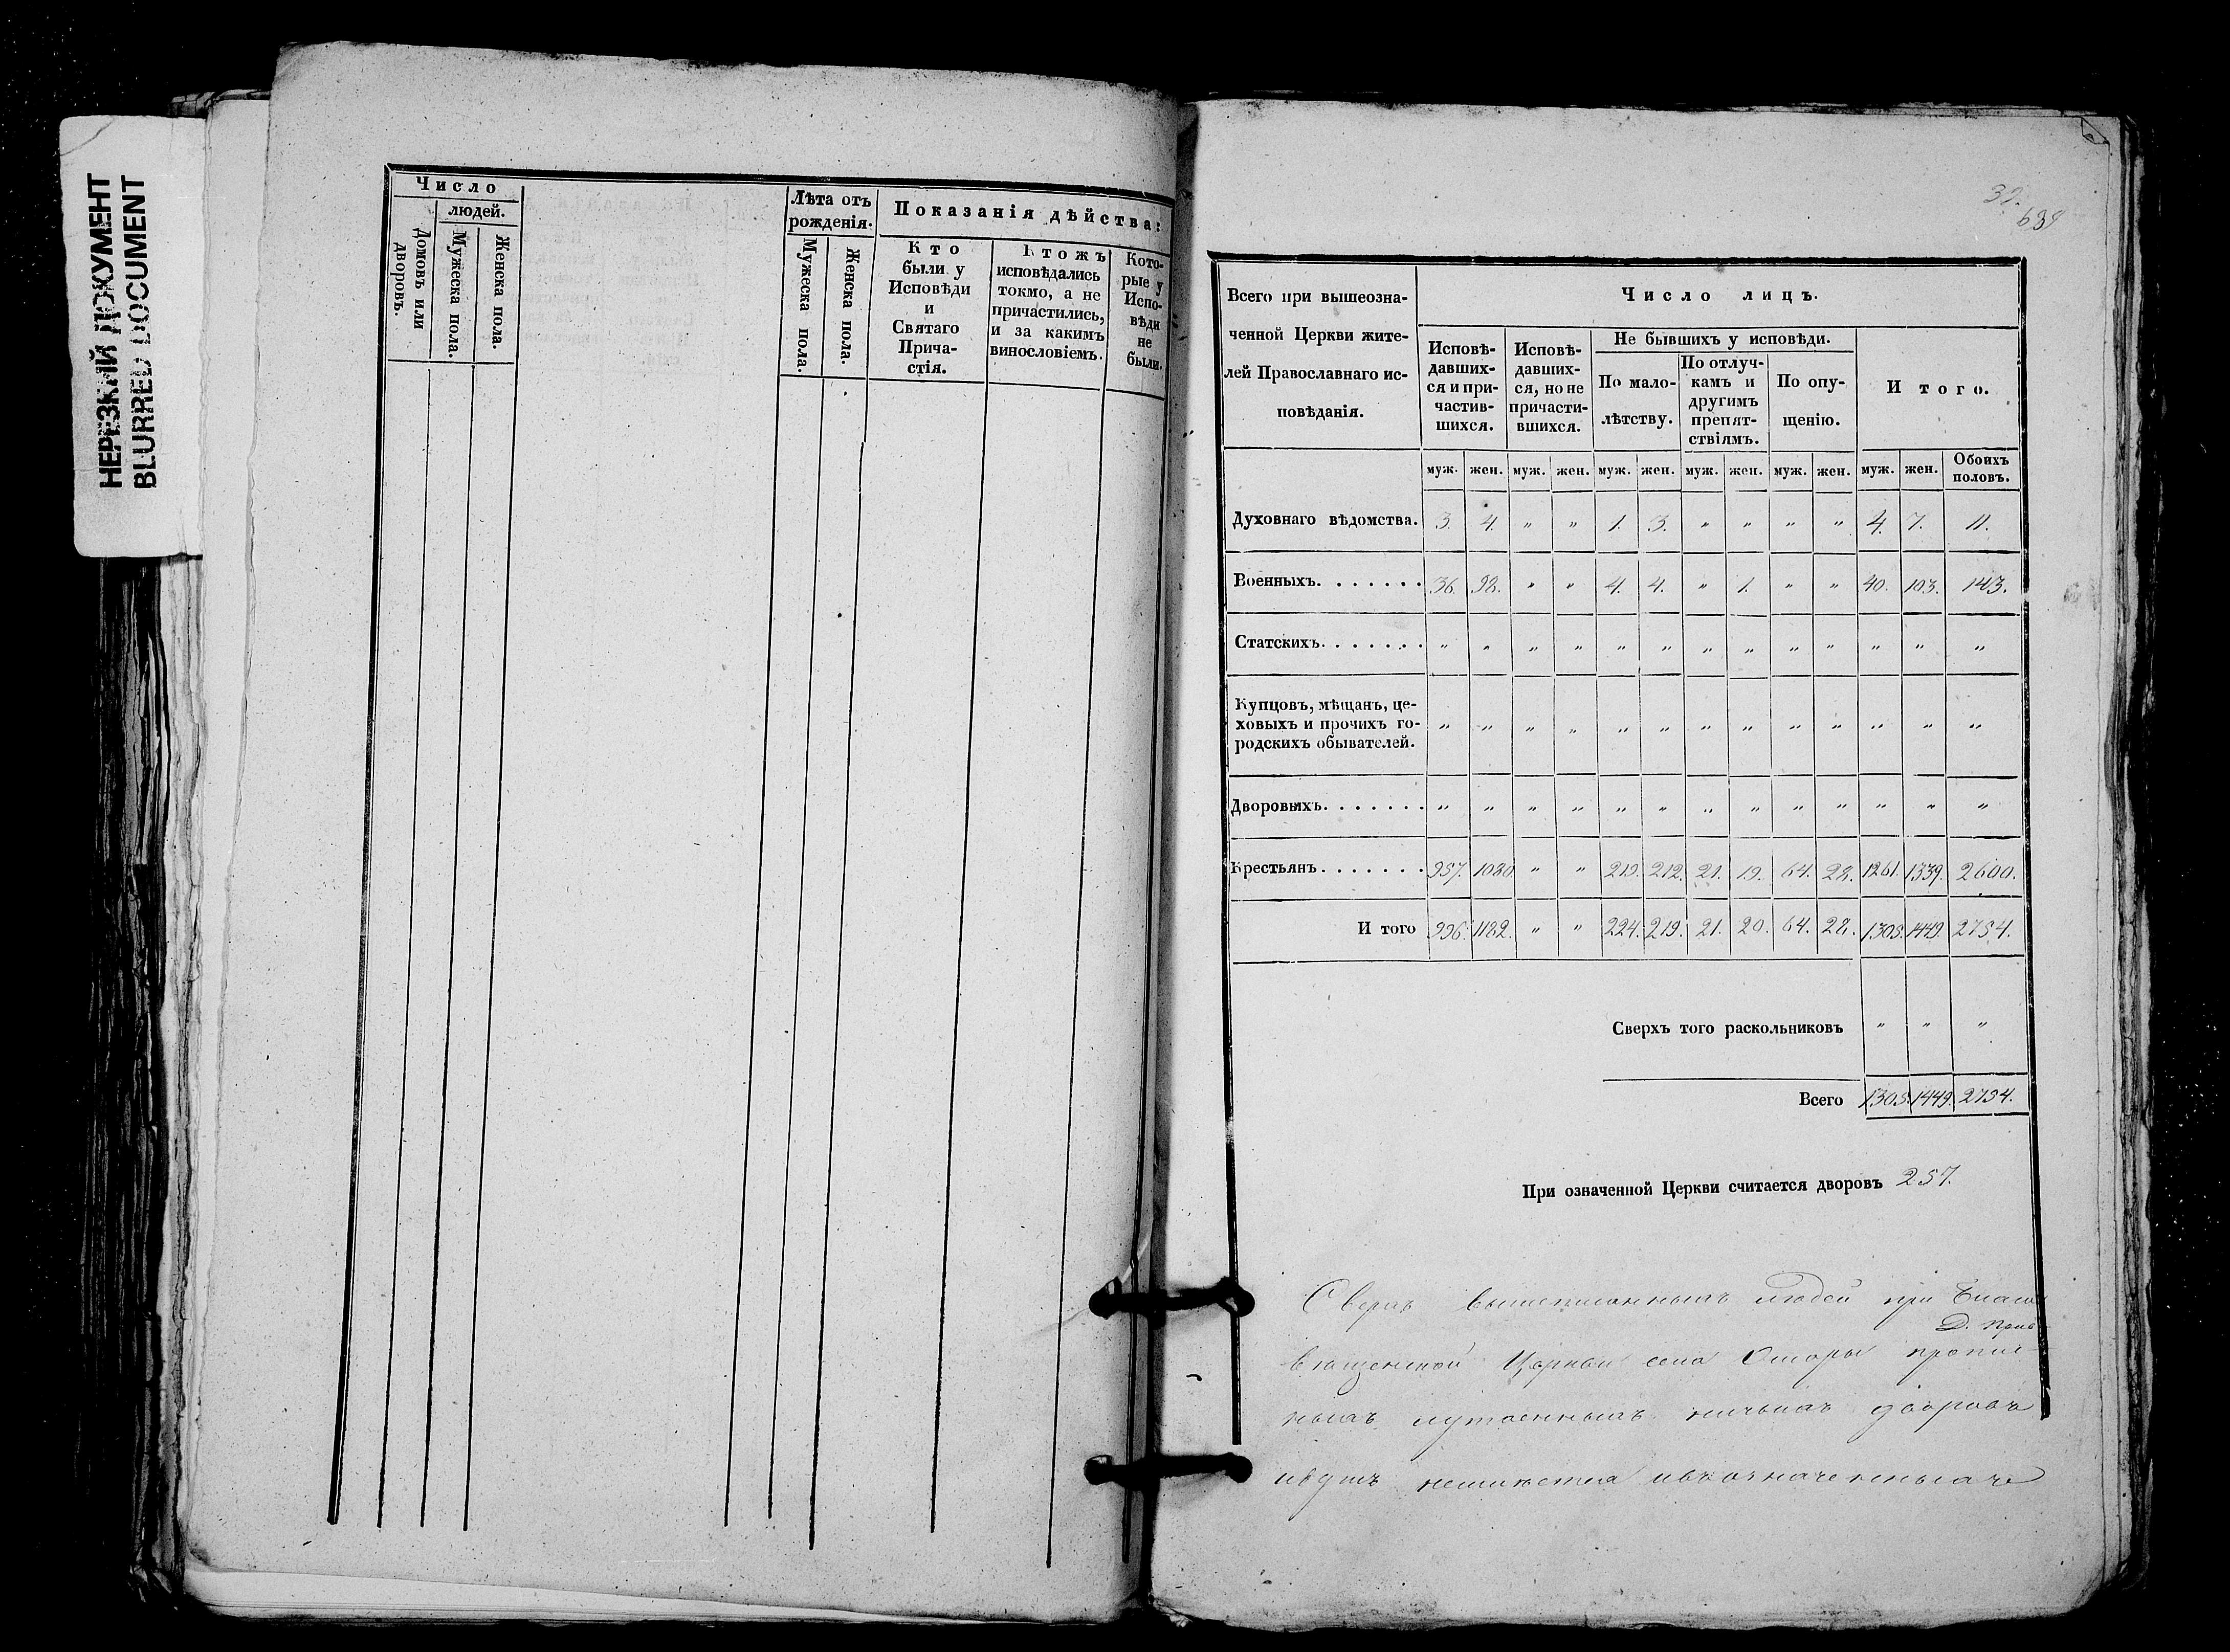 НЕРЕЗКИЙ ДОКУМЕНТ
BLURRED DOCUMENT
Число
людей.
Домовъ или дворовъ.
Мужеска пола.
Женска пола.
Лѣта отъ
рожденія.
Мужеска пола.
Женска пола.
Показанія дѣйства:
Кто
были у
Исповѣди
и
Святаго
Прича-
стія.
Ктожъ
исповѣдались
токмо, а не
причастились,
и за какимъ
винословіемъ.
Кото-
рые у
Испо-
вѣди
не
были.
Всего при вышеозна-
ченной Церкви жите-
лей Православнаго ис-
повѣданія.
Число лицъ.
Исповѣ-
давших-
ся и при-
частив-
шихся.
Исповѣ-
давших-
ся, но не
причасти-
вшихся.
Не бывшихъ у исповѣди.
По мало-
лѣтству.
По отлуч-
камъ и
другимъ
препят-
ствіямъ.
По опу-
щенію.
Итого.
муж. жен. муж. жен. муж. жен. муж. жен. муж. жен. муж. жен. Обоихъ половъ.
Духовнаго вѣдомства. 3. 4. „ „ 1. 3. „ „ „ „ 4. 7. 11.
Военныхъ. . . . . . . 36. 98. „ „ 4. 4. „ 1. „ „ 40. 103. 143.
Статскихъ. . . . . . . „ „ „ „ „ „ „ „ „ „ „ „ „
Купцовъ, мѣщанъ, це-
ховыхъ и прочихъ го-
родскихъ обывателей. „ „ „ „ „ „ „ „ „ „ „ „ „
Дворовыхъ. . . . . . . „ „ „ „ „ „ „ „ „ „ „ „ „
Крестьянъ. . . . . . . 957. 1080 „ „ 219. 212. 21. 19. 64. 28. 1261. 1339. 2600.
И того 996. 1182. „ „ 224. 219. 21. 20. 64. 28. 1305. 1449. 2754.
Сверхъ того раскольниковъ „ „ „
Всего 1305. 1449. 2754.
При означенной Церкви считается дворовъ 257.
Сверхъ вышеписанныхъ людей при
Церкви села
дворовъ